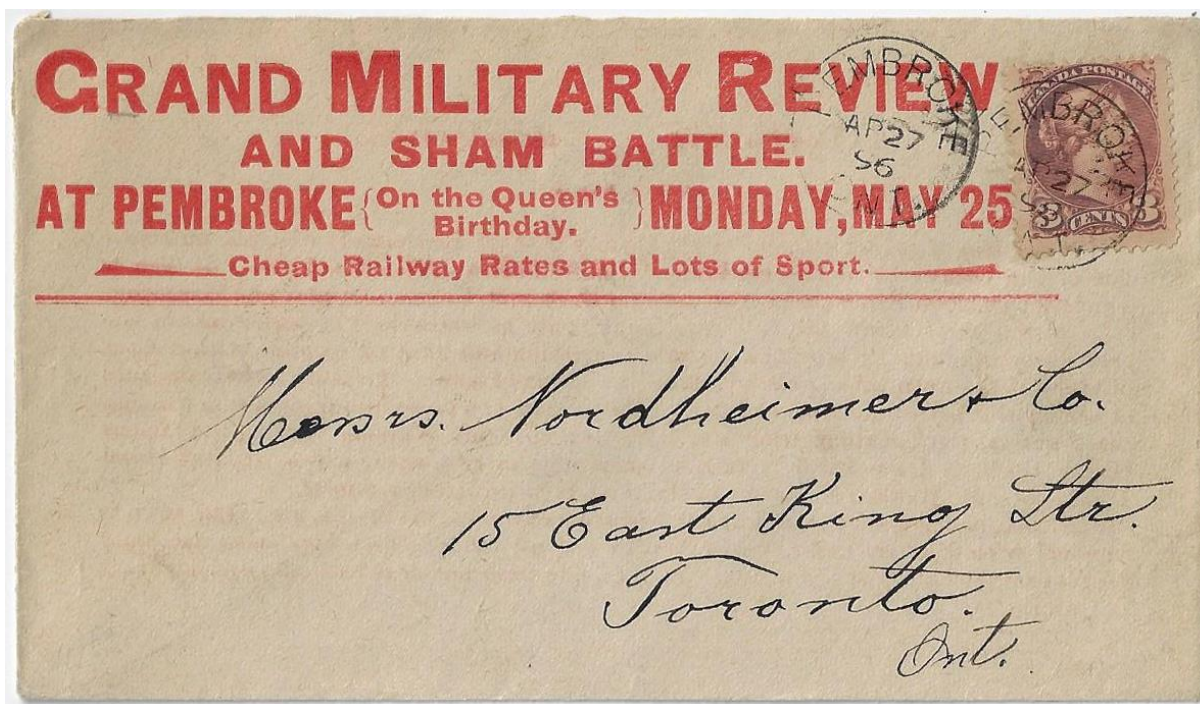 GRAND MILITARY REVIEW
AND SHAM BATTLE.
AT PEMBROKE { On the Queen's Birthday. } MONDAY, MAY 25
Cheap Railway Rates and Lots of Sport.
PEMBROKE
AP 27
96
ONT.
CANADA POSTAGE
3 CENTS 3
PEMBROKE
27
Messrs. Nordheimer & Co.
15 East King Str.
Toronto.
Ont.